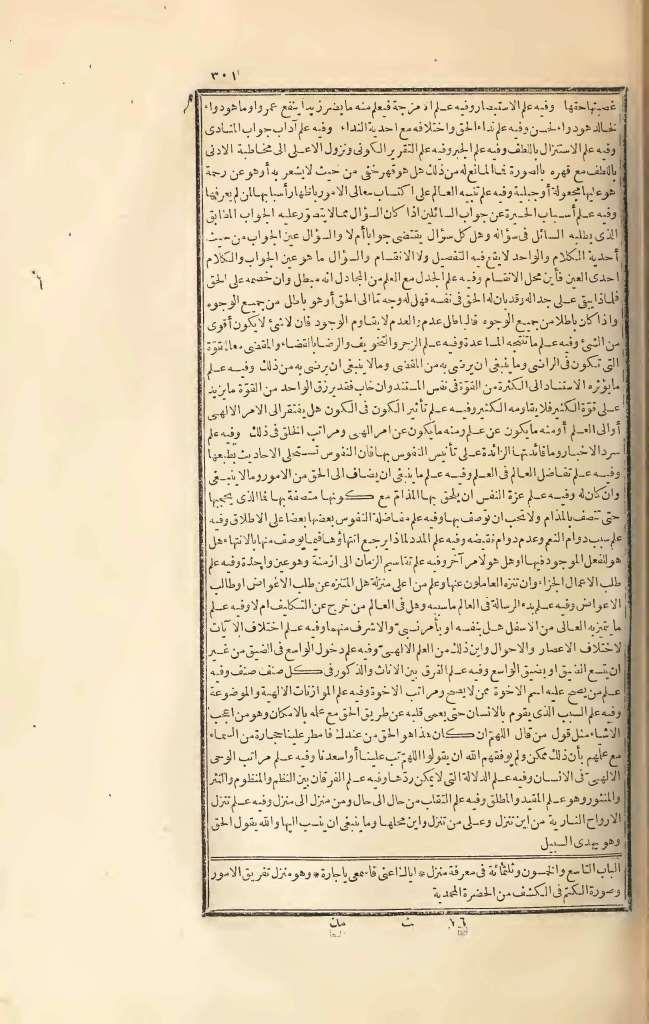 ٣٠١
غصبتها حقها وفيه علم الاستبصار وفيه علم الامزجة فيعلم منه ما يضر زيدا ينفع عمرا وما هو دواء
لخالد هو داء لحسن وفيه علم نداء الحق واختلافه مع احدية النداء وفيه علم آداب جواب المنادى
وفيه علم الاستنزال باللطف وفيه علم الجبر وفيه علم التقرير الكونى ونزول الاعلى الى مخاطبة الادنى
باللطف مع قهره بالصورة فما المانع له من ذلك هل هو قهر خفى من حيث لا يشعر به أو هو عن رحمة
هو عليها مجعولة أو جبلية وفيه علم تنبيه العالم على اكتساب معالى الامور باظهار أسبابها لمن لم يعرفها
وفيه علم أسباب الحيرة عن جواب السائلين اذا كان السؤال مما لا يتصور عليه الجواب المطابق
الذى يطلبه السائل فى سؤاله وهل كل سؤال يقتضى جوابا أم لا والسؤال عين الجواب من حيث
أحدية الكلام والواحد لا يقع فيه التفصيل ولا الانقسام والسؤال ما هو عين الجواب والكلام
احدى العين فأين محل الانقسام وفيه علم الجدل مع العلم من المجادل انه مبطل وان خصمه على الحق
فلماذا يبقى على جداله وقد بان له الحق فى نفسه فهل له وجه تما الى الحق أو هو باطل من جميع الوجوه
واذا كان باطلا من جميع الوجوه فالباطل عدم والعدم لا يقاوم الوجود فان لا شئ لا يكون أقوى
من الشئ وفيه علم ما تنتجه المساعدة وفيه علم الزجر والتخويف والرضا بالقضاء والمقضى معا لقوة
التى تكون فى الراضى وما ينبغى ان يرضى به من المقضى وما لا ينبغى ان يرضى به من ذلك وفيه علم
ما يؤثره الاستناد الى الكثرة من القوة فى نفس المستند وان خاب فقد يرزق الواحد من القوة ما يزيد
على قوة الكثير فلا يقاومه الكثير وفيه علم تأثير الكون فى الكون هل يفتقر الى الامر الالهى
أو الى العلم أو منه ما يكون عن علم ومنه ما يكون عن امر الهى ومراتب الخلق فى ذلك وفيه علم
سرد الاخبار وما فائدتها الزائدة على تأنيس النفوس بها فان النفوس تستحلى الاحاديث بطبعها
وفيه علم تفاضل العالم فى العلم وفيه علم ما ينبغى ان يضاف الى الحق من الامور وما لا ينبغى
وان كان له وفيه علم عزة النفس ان يلحق بها المذام مع كونها متصفة بها فما الذى يحجبها
حتى تتصف بالمذام ولا تحب ان توصف بها وفيه علم مفاضلة النفوس بعضها بعضا على الاطلاق وفيه
علم سبب دوام النعم وعدم دوام نقيضه وفيه علم المدد لماذا يرجع انتهاؤها فيما يوصف منها بالانتهاء هل
هو للفعل الموجود فيها او هل هو لامر آخر وفيه علم تقاسيم الزمان الى ازمنة وهو عين واحدة وفيه علم
طلب الاعمال الجزاء وان تنزه العاملون عنها وعلم من اعلى منزلة هل المتنزه عن طلب الاعواض او طالب
الاعواض وفيه علم بدء الرسالة فى العالم ما سببه وهل فى العالم من خرج عن التكليف ام لا وفيه علم
ما يتميز به العالى من الاسفل هل بنفسه او بأمر نسبى والاشرف منهما وفيه علم اختلاف الآيات
لاختلاف الاعصار والاحوال واين ذلك من العلم الالهى وفيه علم دخول الواسع فى الضيق من غير
ان يتسع الضيق او يضيق الواسع وفيه علم الفرق بين الاناث والذكور فى كل صنف صنف وفيه
علم من يصح عليه اسم الاخوة ممن لا يصح ومراتب الاخوة وفيه علم الموازنات الالهية والموضوعة
وفيه علم السبب الذى يقوم بالانسان حتى يعمى قلبه عن طريق الحق مع علمه بالامكان وهو من اعجب
الاشياء مثل قول من قال اللهم ان كان هذا هو الحق من عندك فامطر علينا حجارة من السماء
مع علمهم بأن ذلك ممكن ولم يوفقهم الله ان يقولوا اللهم تب علينا أو اسعدنا وفيه علم مراتب الوحى
الالهى فى الانسان وفيه علم الدلالة التى لا يمكن ردّها وفيه علم الفرقان بين النظم والمنظوم والنثر
والمنثور وهو علم المقيد والمطلق وفيه علم التقلب من حال الى حال ومن منزل الى منزل وفيه علم تنزل
الارواح النارية من اين تنزل وعلى من تنزل واين محلها وما ينبغى ان ينسب اليها والله يقول الحق
وهو يهدى السبيل
الباب التاسع والخمسون وثلثمائة فى معرفة منزل * اياك اعنى فاسمعى يا جارة * وهو منزل تفريق الامور
وصورة الكتم فى الكشف من الحضرة المحمدية
١٦ ث مك